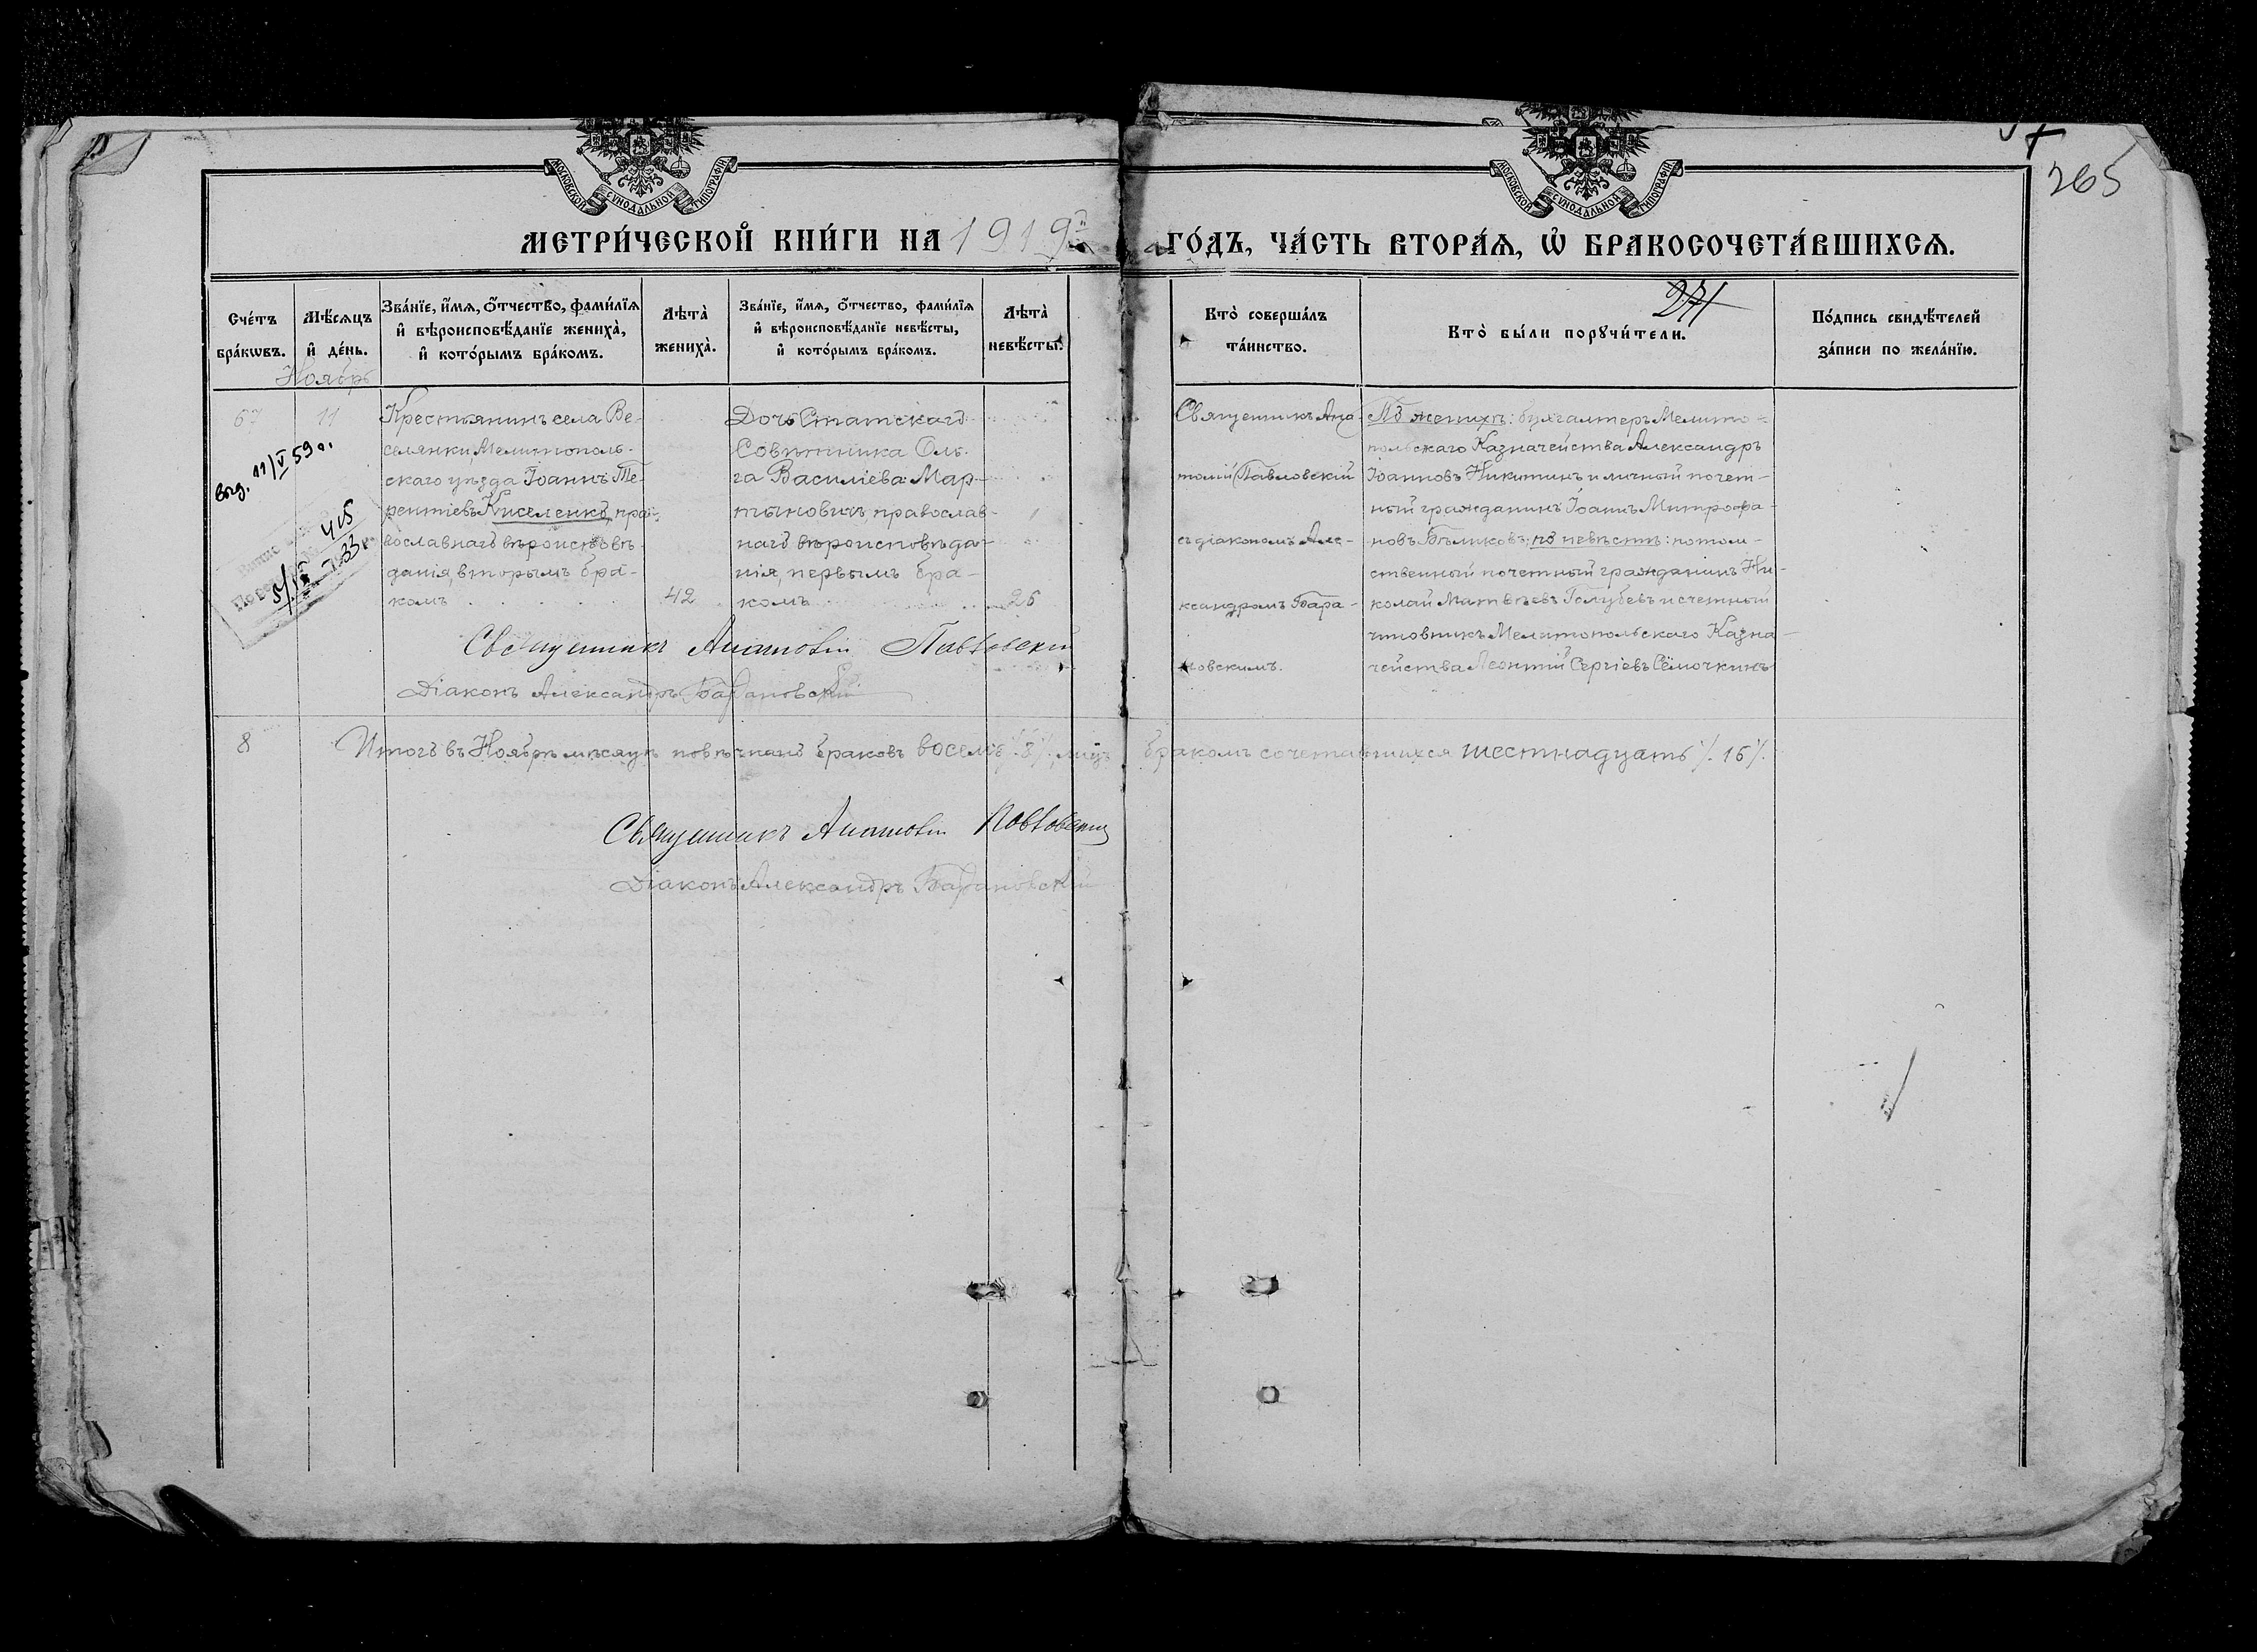 265
МОСКОВСКОЙ СУНОДАЛЬНОЙ ТИПОГРАФІИ
МОСКОВСКОЙ СУНОДАЛЬНОЙ ТИПОГРАФІИ
МЕТРИ́ЧЕСКОЙ КНИ́ГИ НА 1919й ГО́ДЪ, ЧА́СТЬ ВТОРА́Я, Ѡ҆ БРАКОСОЧЕТА́ВШИХСЯ.
271
Сче́тъ бра́кωвъ.
Мѣ́сяцъ и҆ де́нь.
Зва́нїе, и҆́мя, ѻ҆́тчество, фами́лїя и҆ вѣроисповѣ́данїе жениха̀, и҆ кото́рымъ бра́комъ.
Лѣта̀ жениха̀.
Зва́нїе, и҆́мя, ѻ҆́тчество, фами́лїя и҆ вѣроисповѣ́данїе невѣ́сты, и҆ кото́рымъ бра́комъ.
Лѣта̀ невѣ́сты.
Кто̀ соверша́лъ та́инство.
Кто̀ бы́ли порꙋчи́тели.
По́дпись свидѣ́телей за́писи по жела́нїю.
Ноябрь
67
11
Выд. 11/V 59 г.
415
Крестьянинъ села Ве-
селянки, Мелитополь-
скаго уѣзда Іоаннъ Те-
рентіевъ Киселенко, пра-
вославнаго вѣроисповѣ-
данія, вторымъ бра-
комъ
42
Дочь Статскаго
Совѣтника Оль-
га Василіева Мар-
тыновичъ, православ-
наго вѣроисповѣда-
нія, первымъ бра-
комъ
26
Священникъ Ана-
толій Павловскій
съ діакономъ Але-
ксандромъ Бара-
новскимъ.
По женихѣ: бухгалтеръ Мелито-
польскаго Казначейства Александръ
Іоанновъ Никитинъ и личный почет-
ный гражданинъ Іоаннъ Митрофа-
новъ Бѣликовъ; по невѣстѣ: потом-
ственный почетный гражданинъ Ни-
колай Матвѣевъ Голубевъ и счетный
чиновникъ Мелитопольскаго Казна-
чейства Леонтій Сергіевъ Сёмочкинъ
Священникъ Анатолій Павловскій
Діаконъ Александръ Барановскій
8
Итого въ Ноябрѣ мѣсяцѣ повѣнчано браковъ восемь /.8/. лицъ бракомъ сочетавшихся шестнадцать /.16/.
Священникъ Анатолій Павловскій
Діаконъ Александръ Барановскій